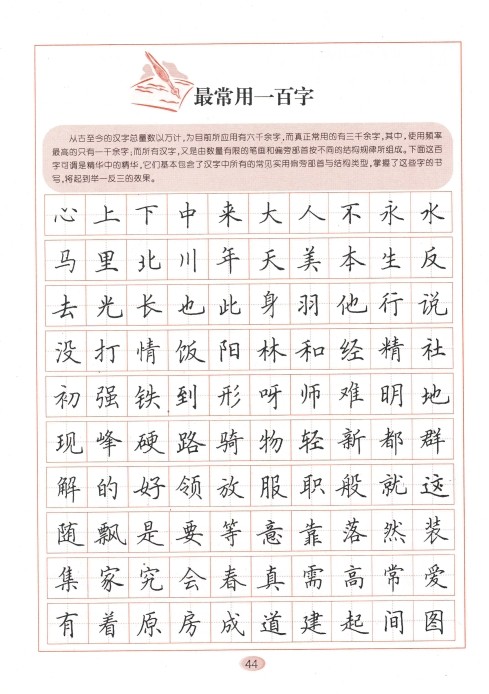 最常用一百字
从古至今的汉字总量数以万计,为目前所应用有六千余字,而真正常用的有三千余字,其中,使用频率
最高的只有一千余字;而所有汉字,又是由数量有限的笔画和偏旁部首按不同的结构规律所组成。下面这百
字可谓是精华中的精华,它们基本包含了汉字中所有的常见实用偏旁部首与结构类型,掌握了这些字的书
写,将起到举一反三的效果。
心上下中来大人不永水
马里北川年天美本生反
去光长也此身羽他行说
没打情饭阳林和经精社
初强铁到形呀师难明地
现峰硬路骑物轻新都群
解的好领放服职般就这
随飘是要等意靠落然装
集家究会春真需高常爱
有着原房成道建起间图
44